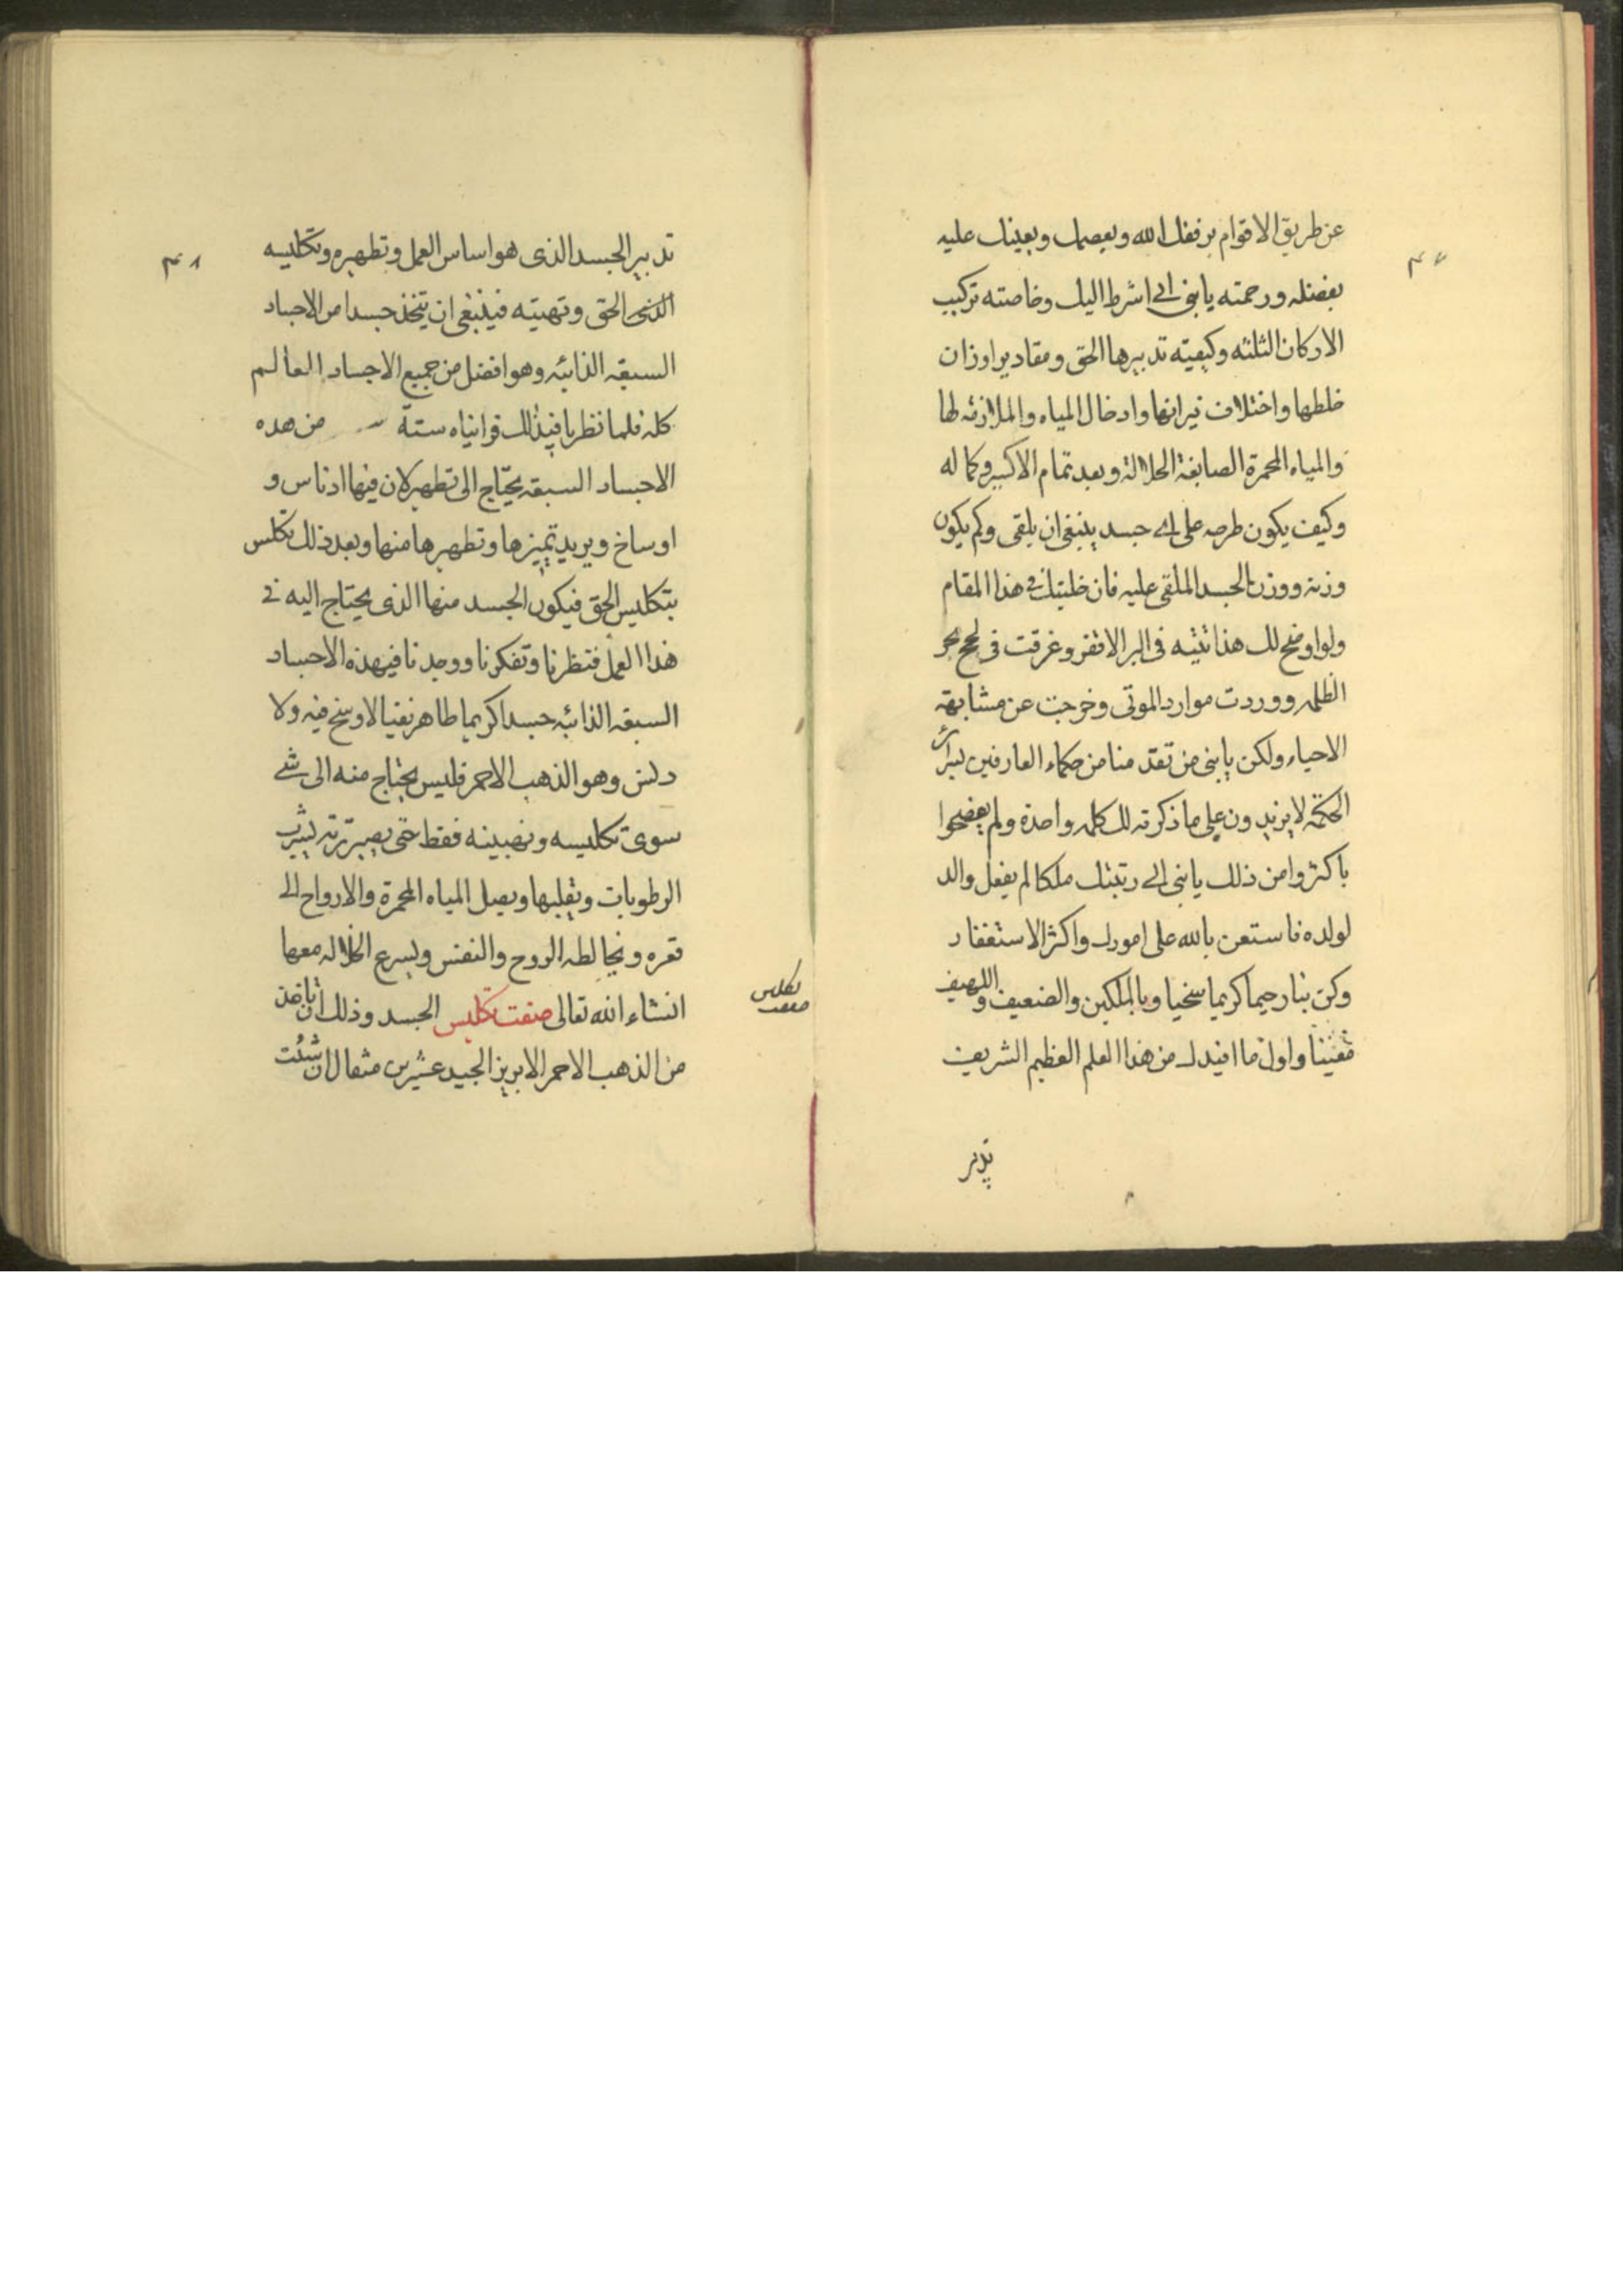 عن طريق الاقوام يرفقك الله ويعصمك ويعينك عليه
بفضله ورحمته يا بنى انى اشرط اليك وخاصته تركيب
الاركان الثلثه وكيفيته تدبيرها الحق ومقادير اوزان
خلطها واختلاف نيرانها وادخال المياه والملازمه لها
والمياه المحمرة الصابغة الحلالة وبعد تمام الاكسير وكماله
وكيف يكون طرحه على اى جسد ينبغى ان يلقى وكم يكون
وزنه ووزن الجسد الملقى عليه فان خليتك فى هذا المقام
ولو اوضح لك هذا تتيه فى البر الاقفر وغرقت فى لجج بحر
الظلمه ووردت موارد الموتى وخرجت عن مشابهة
الاحياء ولكن يا بنى من تقدمنا من حكماء العارفين بسرائر
الحكمة لا يزيدون على ما ذكرته لك كلمه واحدة ولم يفضحوا
باكثروا من ذلك يا بنى انى رتبتك ملكا لم يفعل والد
لولده فاستعن بالله على امورك واكثر الاستغفار
وكن بنا رحيما كريما سخيا وبالمسكين والضعيف واللهيف
مغيثا واول ما افيدك من هذا العلم العظيم الشريف
تدبير
٤٧
٤٨
تدبير الجسد الذى هو اساس العمل وتطهيره وتكليسه
الذى الحق وتهيته فينبغى ان يتخذ جسدا من الاجساد
السبعه الذائبه وهو افضل من جميع الاجساد العالم
كله فلما نظرنا فيذلك فراينه ستة من هده
الاجساد السبعه يحتاج الى تطهير لان فيها ادناس و
اوساخ ويريد تميزها وتطهيرها منها وبعد ذلك تكلس
بتكليس الحق فيكون الجسد منها الذى يحتاج اليه فى
هذا العمل فنظرنا وتفكرنا ووجدنا فيهذه الاجساد
السبعه الذائبه جسدا كريما طاهر نقيا لا وسخ فيه ولا
دنس وهو الذهب الاحمر فليس يحتاج منه الى شى
سوى تكليسه وتهبيته فقط حتى يصير تربة يشرب
الرطوبات ويقلبها ويصل المياه المحمرة والارواح الى
قعره ويخالطه الروح والنفس ويسرع انحلاله معها
انشاء الله تعالى صفت تكليس الجسد وذلك ان تاخذ
من الذهب الاحمر الابريز الجيد عشرين مثقال ان شئت
تكليس